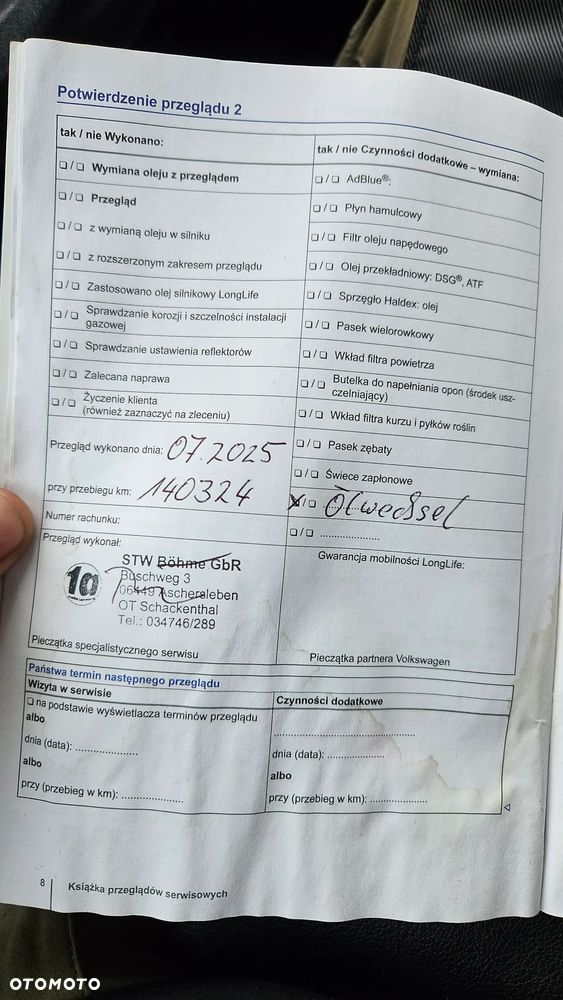 Potwierdzenie przeglądu 2
tak / nie Wykonano:
❑ / ❑ Wymiana oleju z przeglądem
❑ / ❑ Przegląd
❑ / ❑ z wymianą oleju w silniku
❑ / ❑ z rozszerzonym zakresem przeglądu
❑ / ❑ Zastosowano olej silnikowy LongLife
❑ / ❑ Sprawdzanie korozji i szczelności instalacji
gazowej
❑ / ❑ Sprawdzanie ustawienia reflektorów
❑ / ❑ Zalecana naprawa
❑ / ❑ Życzenie klienta
(również zaznaczyć na zleceniu)
Przegląd wykonano dnia: 07.2025
przy przebiegu km: 140324
Numer rachunku:
Przegląd wykonał:
1a
STW Böhme GbR
Buschweg 3
06449 Aschersleben
OT Schackenthal
Tel.: 034746/289
Pieczątka specjalistycznego serwisu
tak / nie Czynności dodatkowe – wymiana:
❑ / ❑ AdBlue®:
❑ / ❑ Płyn hamulcowy
❑ / ❑ Filtr oleju napędowego
❑ / ❑ Olej przekładniowy: DSG®, ATF
❑ / ❑ Sprzęgło Haldex: olej
❑ / ❑ Pasek wielorowkowy
❑ / ❑ Wkład filtra powietrza
❑ / ❑ Butelka do napełniania opon (środek usz-
czelniający)
❑ / ❑ Wkład filtra kurzu i pyłków roślin
❑ / ❑ Pasek zębaty
❑ / ❑ Świece zapłonowe
X / ❑ Ölwechsel
❑ / ❑ .....................
Gwarancja mobilności LongLife:
Pieczątka partnera Volkswagen
Państwa termin następnego przeglądu
Wizyta w serwisie
❑ na podstawie wyświetlacza terminów przeglądu
albo
dnia (data): .....................
albo
przy (przebieg w km): .....................
Czynności dodatkowe
..............................................
dnia (data): ...................
albo
przy (przebieg w km): ...................
8
Książka przeglądów serwisowych
OTOMOTO